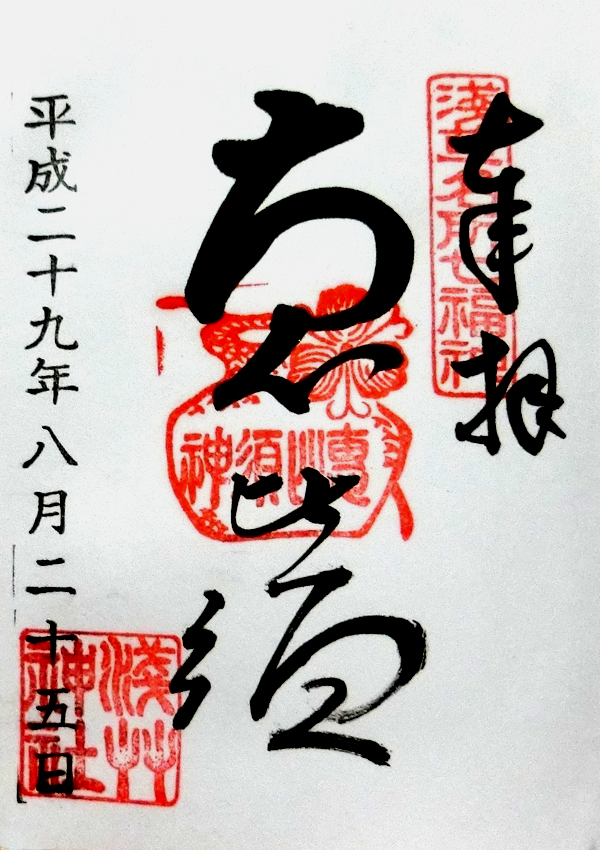 奉拝
浅草名所七福神
恵比須
恵比須神
平成二十九年八月二十五日
浅草神社